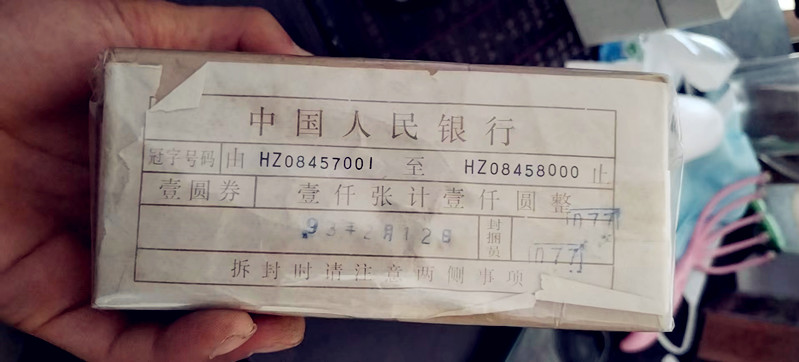 中国人民银行
冠字号码 由 HZ08457001 至 HZ08458000 止
壹圆券 壹仟张计壹仟圆整
93年2月12日 封捆员 1077 1077
拆封时请注意两侧事项